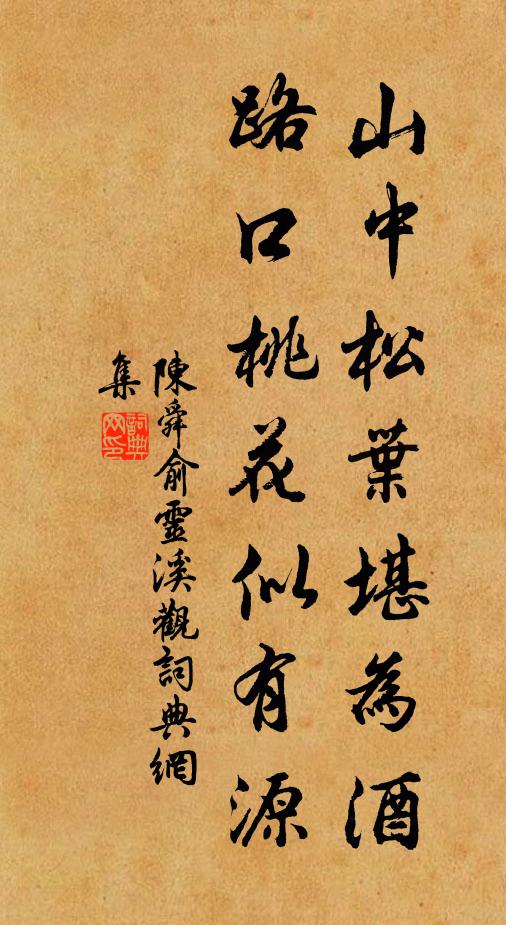 山中松葉堪為酒
路口桃花似有源
陳舜俞靈溪觀詞典網
集
詞典网印